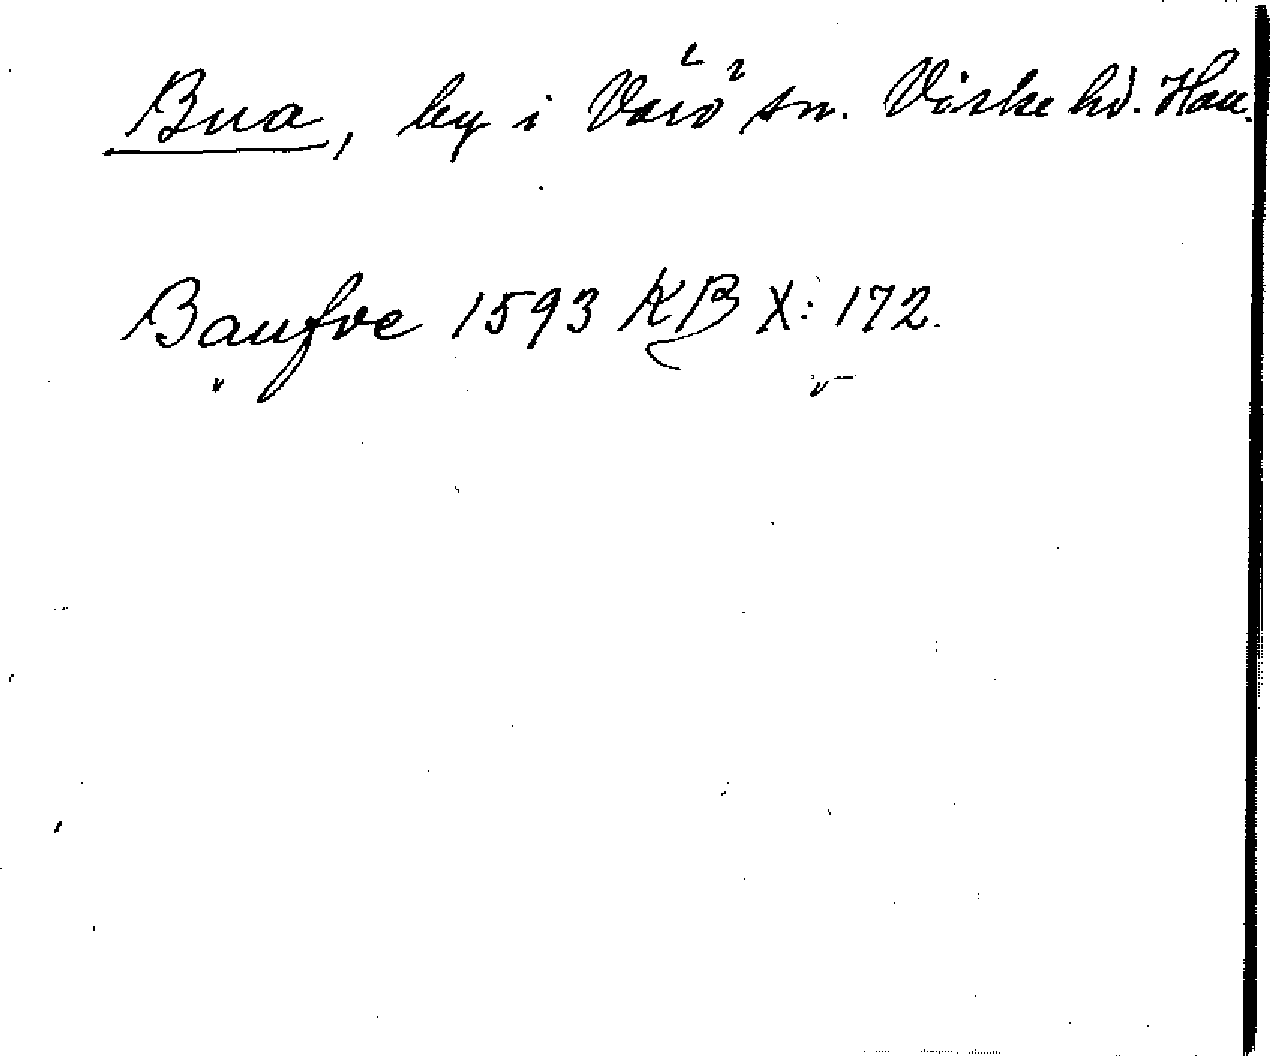 Bua, by i Värö sn. Viske hd. Hall.
Baufve 1593 KB X: 172.